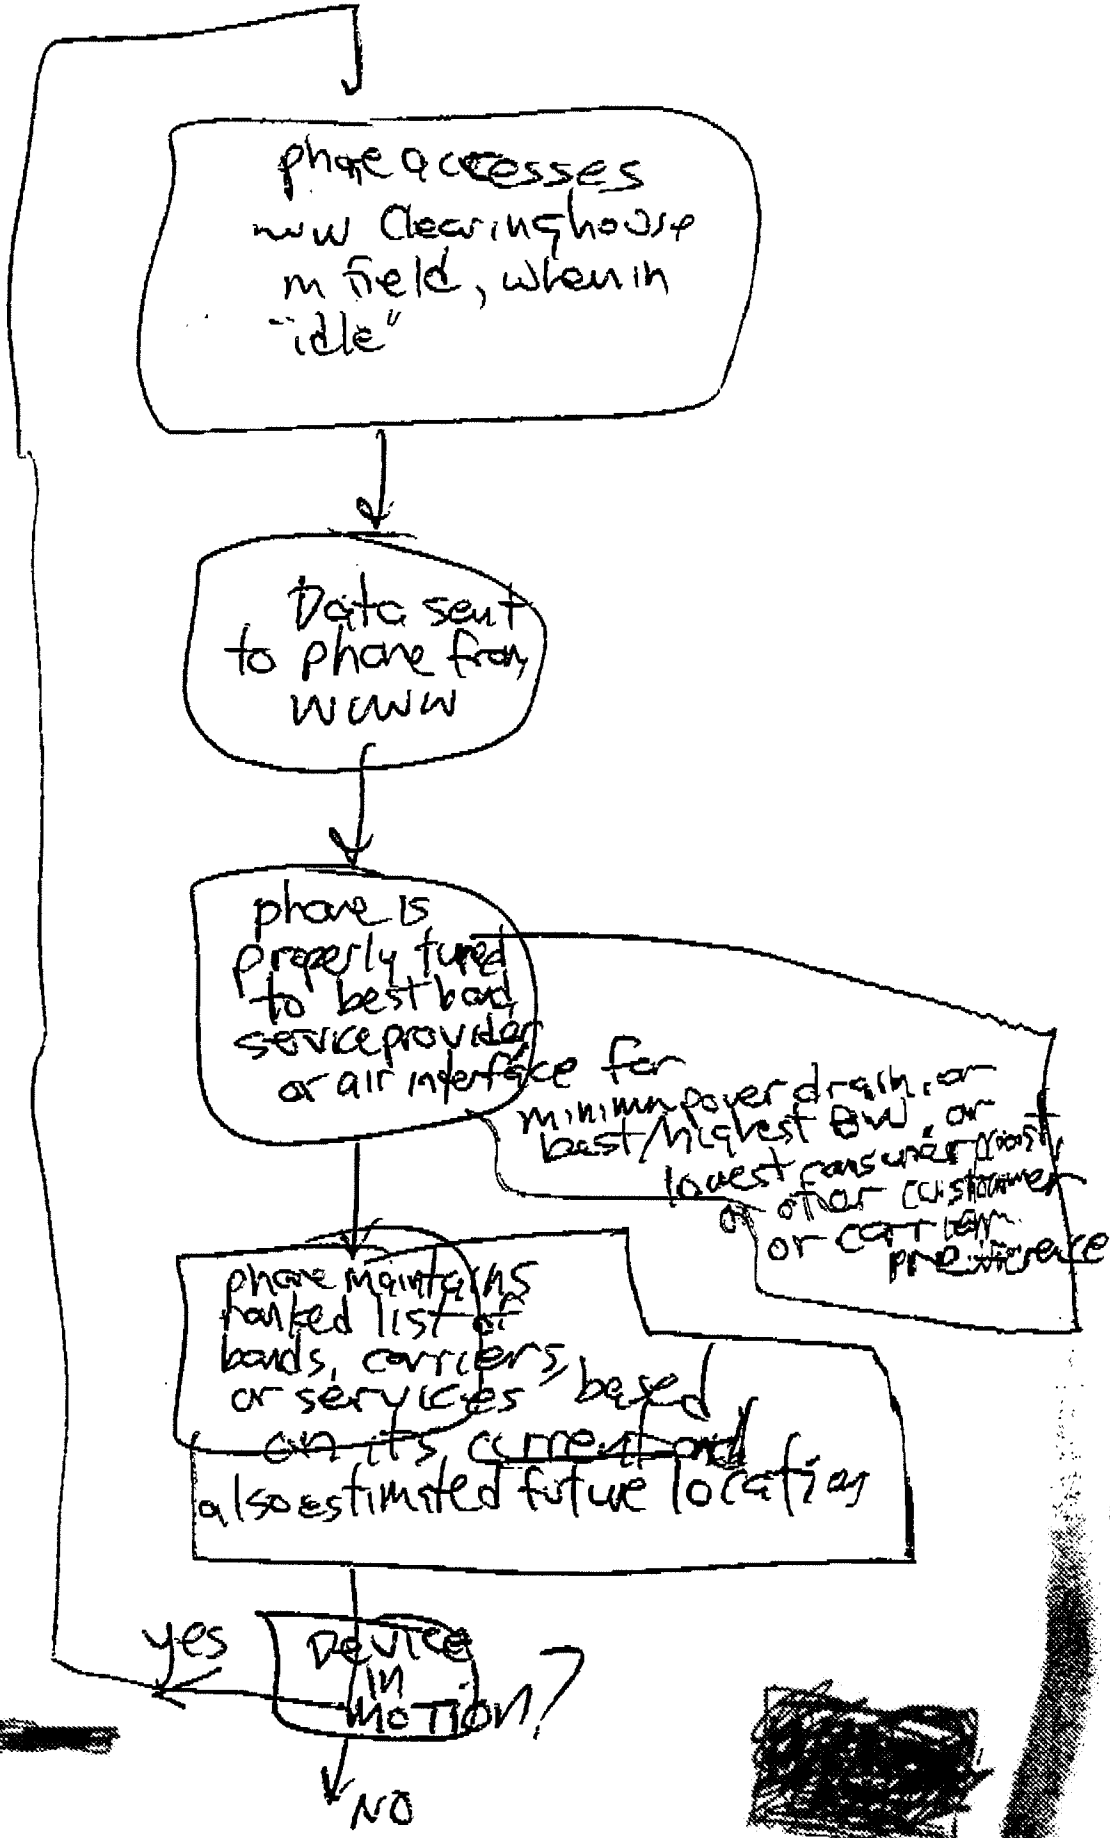 phone accesses
www Clearinghouse
in field, when in
"idle"
Data sent
to phone from
WWW
phone is
properly tuned
to best band,
service provider
or air interface for
minimum power drain, or
best/highest BW, or
lowest consumer cost,
or other customer
or carrier
preference
phone maintains
ranked list of
bands, carriers,
or services based
on its current and
also estimated future location
Device
in
motion?
yes
NO